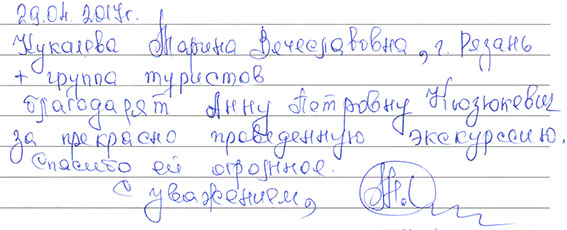 29.04.2017г.
Кукалева Марина Вечеславовна, г. Рязань
+ группа туристов
благодарят Анну Петровну Кюзюкевич
за прекрасно проведенную экскурсию.
Спасибо ей огромное.
С уважением,